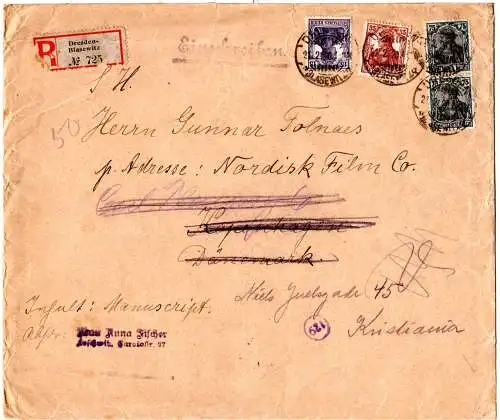 R
Dresden-
Blasewitz
№ 725
Einschreiben.
S. H.
50
Herrn Gunnar Tolnaes
p. Adresse: Nordisk Film Co.
Kopenhagen
Dänemark
Niels Juelsgade 45
Kristiania
Inhalt: Manuscript.
Absr:
Frau Anna Fischer
129